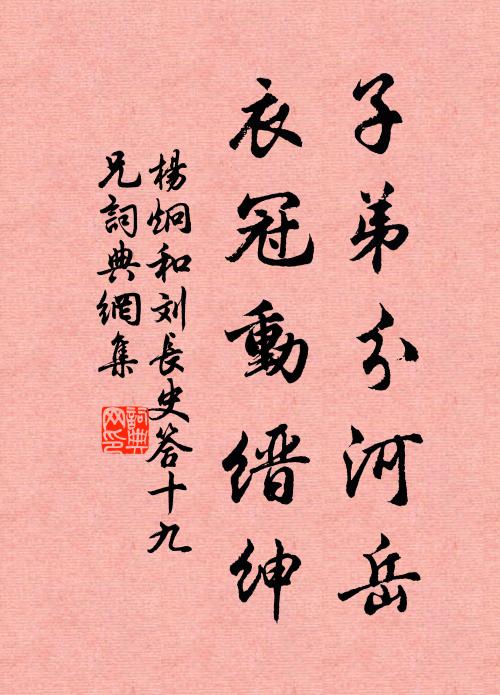 子弟分河岳
衣冠動縉紳
楊炯和刘長史答十九
兄詞典網集
詞典
网印